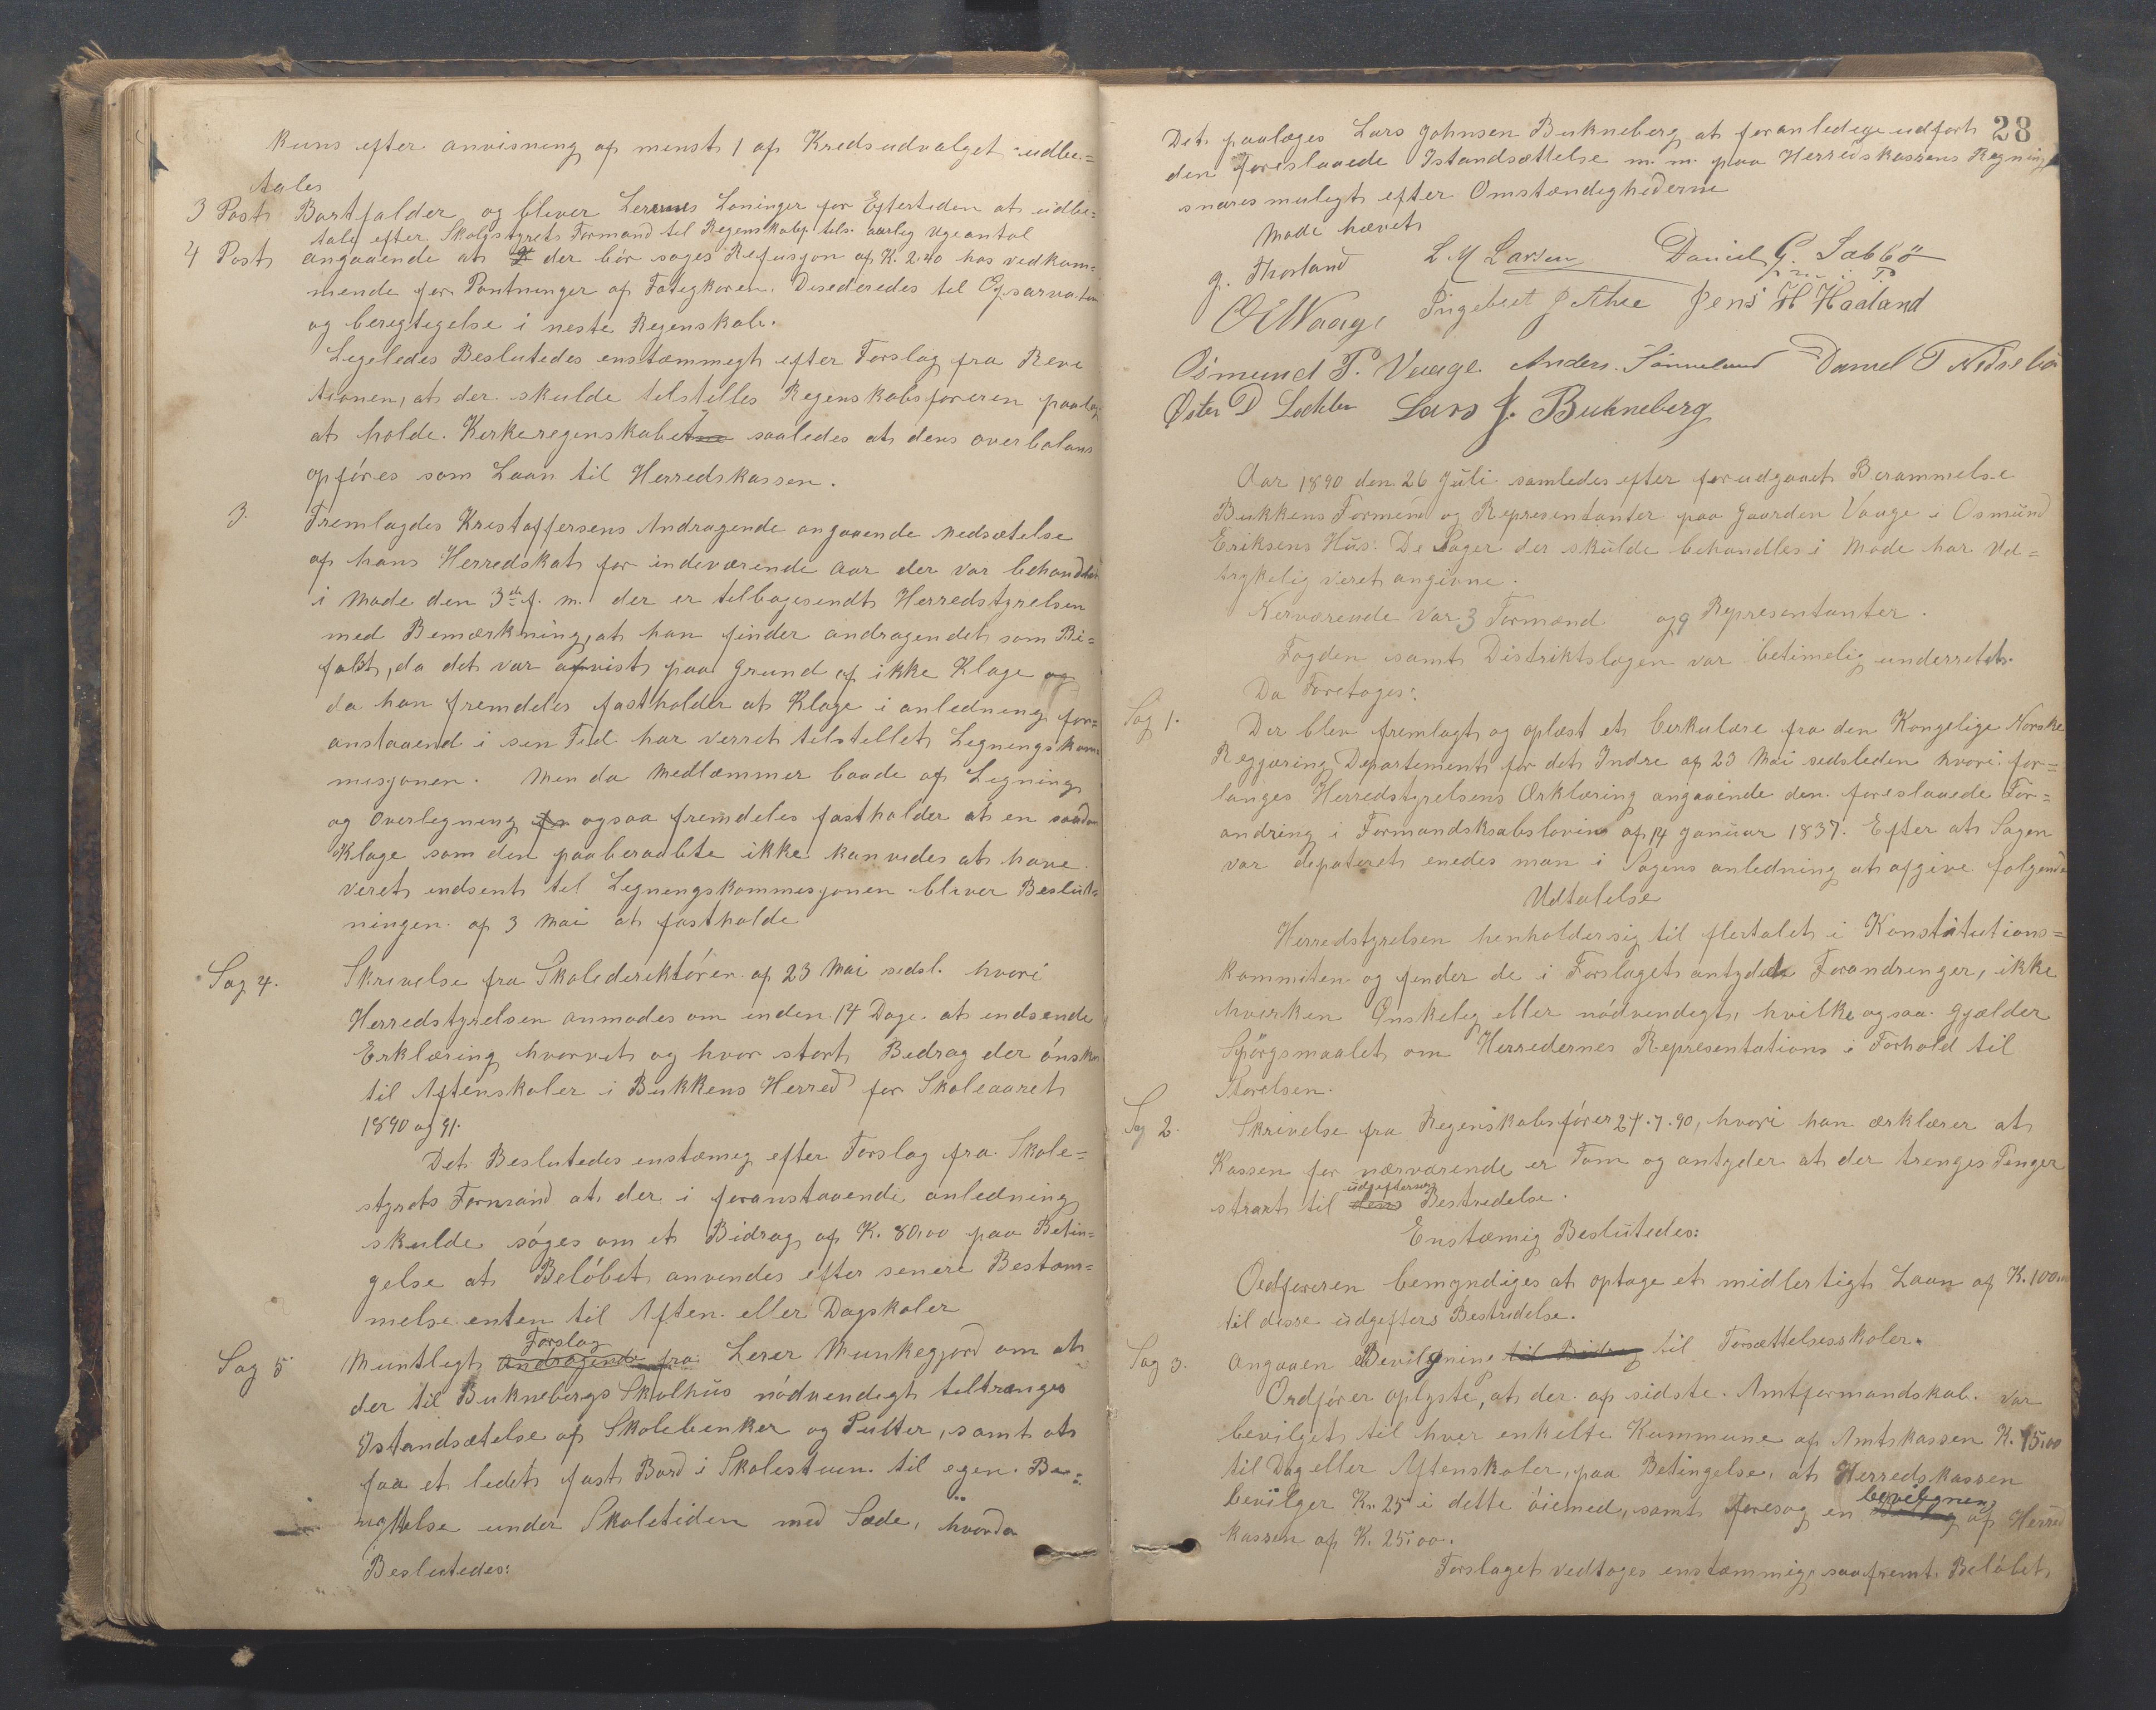 kuns efter anvisning af minst 1 af Kredsudvalget udbe=
tales
3 Post Bortfalder og bliver Lerernes Løninger for Eftertiden at udbe=
tale efter Skolestyrets Formand til Regenskabsf. tils. aarlig Ugeantal
4 Post angaaende at der bör søges Refusjon af K. 2.40 hos vedkom=
mende for Pantninger af Fatigkoren. Desederedes til Opsarvation
og beregtegelse i neste Regenskab.
Legeledes Beslutedes enstæmmegt efter Forslag fra Reve
tionen, at der skulde tilstilles Regenskabsføreren paalæg
at holde Kerkeregenskabet saaledes at dens overbalans
opföres som Laan til Herredskassen.
3. Fremlagdes Kristoffersens Andragende angaaende Nedsætelse
af hans Herredskat for indeværende Aar der var behandlet
i Møde den 3de f. m. der er tilbagesendt Herredstyrelsen
med Bemærkning, at han finder andragendet som Bi=
faldt, da det var afvist paa Grund af ikke Klage og
da han fremdeles fastholder at Klage i anledning for=
anstaaend i sin Tid har verret tilstillet Legningskom
misjonen. Men da Medlæmmer baade af Legning
og Overlegning ogsaa fremdeles fastholder at en saadan
Klage som den paaberaabte ikke kan vides at have
veret indsent til Legnengskommesjonen bliver Beslut=
ningen af 3 Mai at fastholde
Sag 4. Skrivelse fra Skoledirektören af 23 Mai sidsl. hvori
Herredstyrelsen anmodes om inden 14 Dage at indsende
Erklæring hvorvet og hvor stort Bedrag der önskes
til Aftenskoler i Bukkens Herred for Skoleaaret
1890 og 91.
Det Beslutedes enstæmig efter Forslag fra Skole=
styrets Formand at der i foranstaaende anledning
skulde söges om et Bidrag af K. 80.00 paa Betin=
gelse at Belöbet anvendes efter senere Bestæm=
melse enten til Aften eller Dagskoler
Sag 5 Muntlegt Forslag andragende fra Lerer Munkegjord om at
der til Buknebergs Skolhus nödvendegt teltrænges
Istandsætelse af Skolebenker og Pulter, samt at
faa et ledet fast Bord i Skolestuen til egen Be=
nyttelse under Skoletiden med Sæde, hvorda
Beslutedes:
28
Det paalæges Lars Johnsen Bukneberg at foranledege udfört
den Foreslaaede Istandsættelse m. m. paa Herredskassens Regning
snares mulegt efter Omstændighederne
Møde hævet
G. Thorland L M Larsen Daniel G. Sabbö
O E Waage Ingebret J Ahee Jens H Haaland
Osmund P. Vaage. Anders Sönneland Daniel T Nedrebö
Lars J. Bukneberg
Aar 1890 den 26 Juli samledes efter forudgaaet Berammelse
Bukkens Formend og Representanter paa Gaarden Vaage i Osmund
Eriksens Hus. De Sager der skulde behandles i Møde har Ud=
trykelig veret angivne.
Nerværende var 3 Formænd og 9 Representanter.
Fogden samt Distriktslægen var betimelig underrettet.
Da Foretoges:
Sag 1. Der blev fremlagt og oplæst et Cerkulære fra den Kongelige Norske
Regjæring Departement for det Indre af 23 Mai sidstleden hvori for=
langes Herredstyrelsens Ærklæring angaaende den foreslaaede For=
andring i Formandsksabsloving af 14 Januar 1837. Efter at Sagen
var depateret enedes man i Sagens anledning at afgive følgende
Udtalelse
Herredstyrelsen henholder sig til flertalet i Konstitutions=
kommiten og finder de i Forslaget antydede Forandrenger, ikke
hverken Önskelig eller nödvendegt, hvilke ogsaa gjælder
Spörgsmaalet om Herredernes Representations i Forhold til
Störelsen.
Sag 2. Skrivelse fra Regenskabsförer 24.7.90, hvori han ærklærer at
Kassen for nærværende er Tom og antyder at der trenges Penger
strart til dens udgefters Bestredelse.
Enstæmig Beslutedes:
Ordføreren bemyndiges at optage et midlertigt Laan af K. 100.00
til disse udgefters Bestridelse.
Sag 3. Angaaen Bevilgning til Bidrag til Forsættelsesskoler.
Ordförer oplyste, at der af sidste Amtformandskab var
bevilget til hver enkelte Kummune af Amtskassen K. 75.00
til Dag eller Aftenskoler, paa Betingelse, at Herredskassen
bevilger Kr. 25 i dette öiemed, samt foresog en bevilgnen af Herred
kassen af K. 25.00.
Forslaget vedtoges enstæmmig, saafremt Belöbet